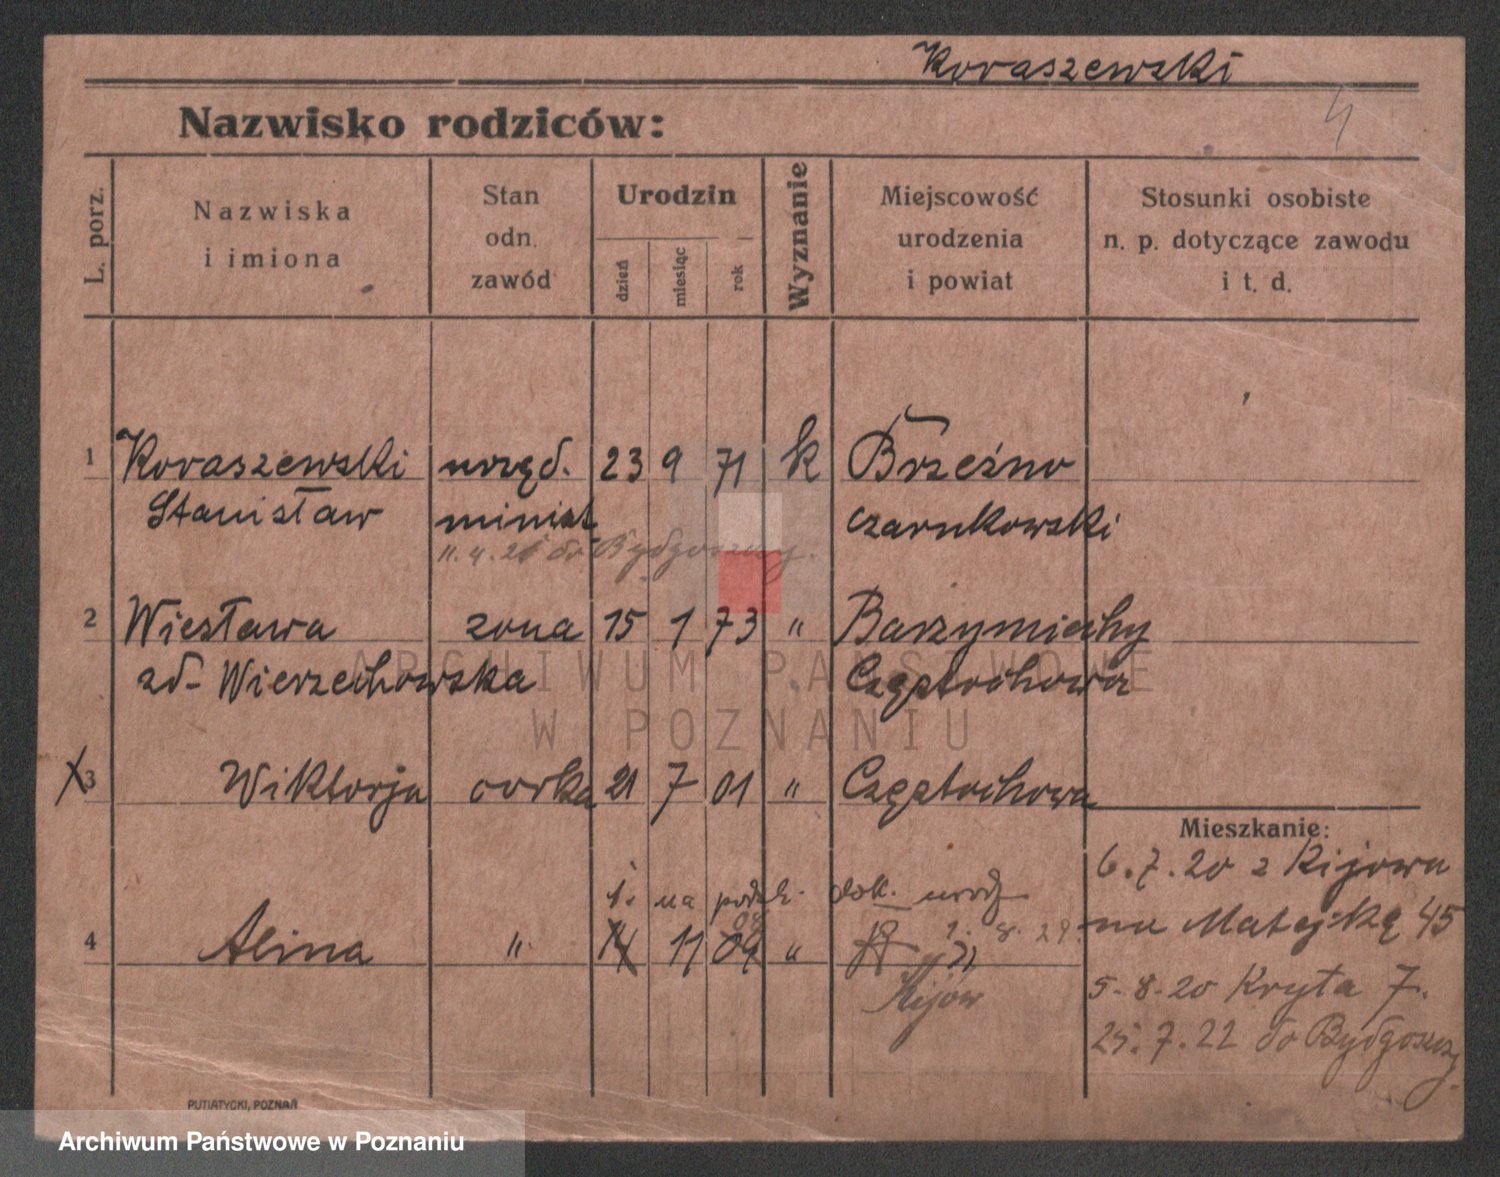 Koraszewski
4
Nazwisko rodziców:
L. porz.
Nazwiska
i imiona
Stan
odn.
zawód
Urodzin
dzień
miesiąc
rok
Wyznanie
Miejscowość
urodzenia
i powiat
Stosunki osobiste
n. p. dotyczące zawodu
i t. d.
1 Koraszewski urzęd. 23 9 71 k Brzeźno
Stanisław minist czarnkowski
11.4.21 do Bydgoszczy.
2 Wiesława zona 15 1 73 " Barzymiechy
zd- Wierzechowska Częstochowa
X 3 Wiktorja corka 21 7 01 " Częstochowa
Mieszkanie:
6.7.20 z Kijowa
1. na podst. dok. urodz
08 1. 8. 29.
na Matejkę 45
4 Alina " 11 09 " "
Kijów
5-8-20 Kryta 7.
25.7.22 do Bydgoszczy.
PUTIATYCKI, POZNAŃ
ARCHIWUM PAŃSTWOWE
W POZNANIU
Archiwum Państwowe w Poznaniu